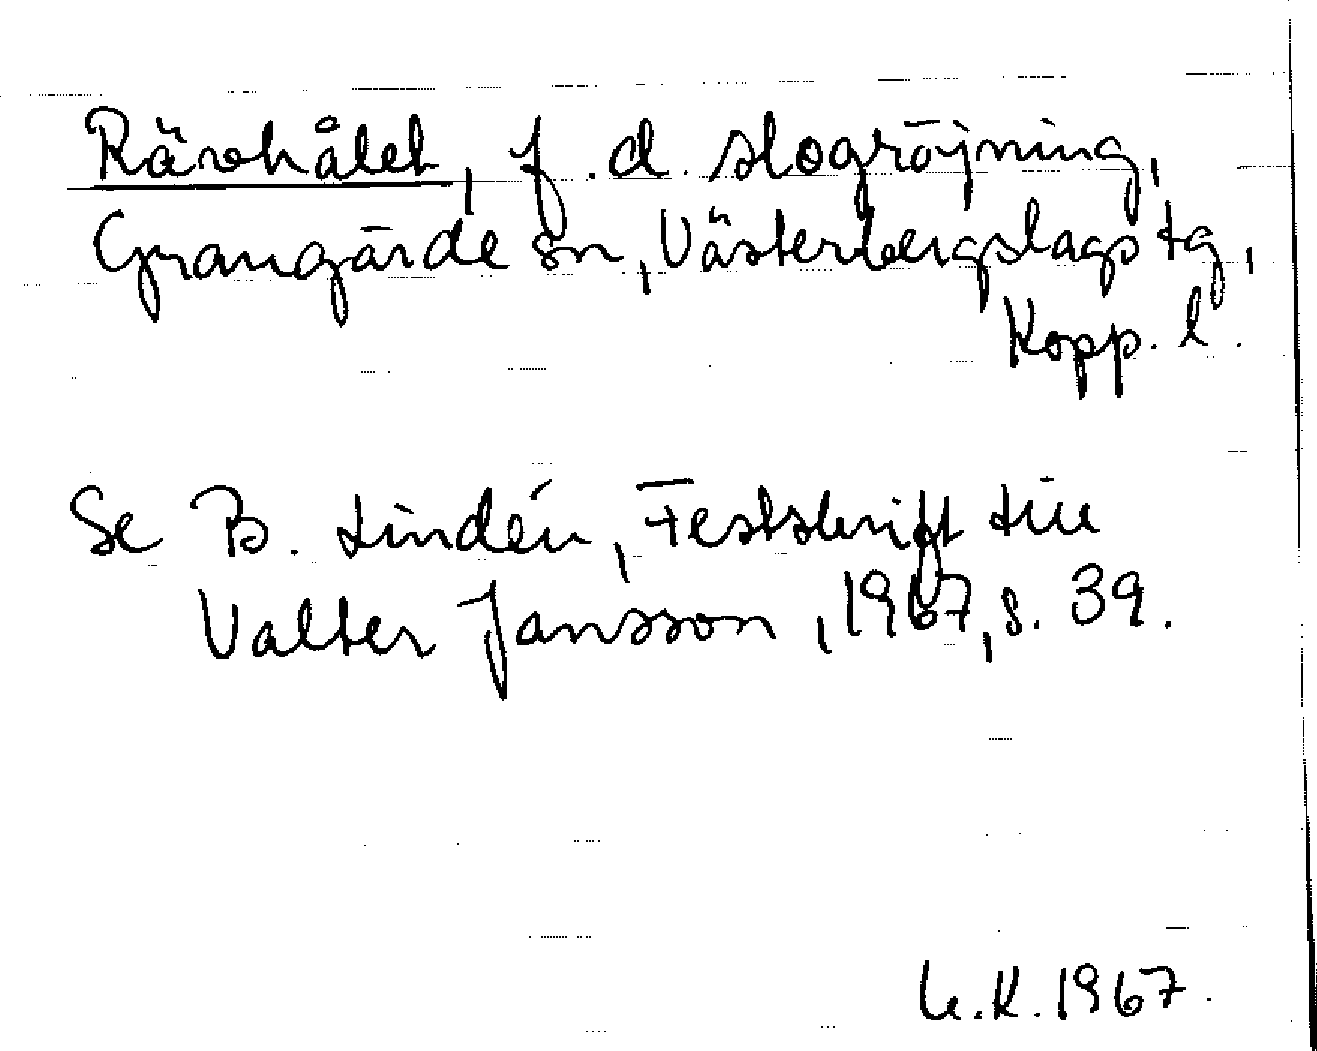 Rävhålet, f.d. slogröjning,
Grangärde sn, Västerbergslags tg,
Kopp. l.
Se B. Lindén, Festskrift till
Valter Jansson, 1967, s. 39.
K. 1967.